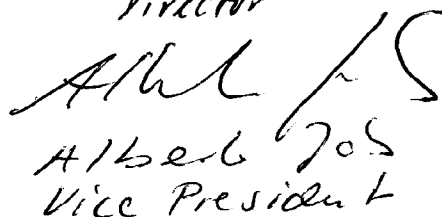 Director
Alberto Job
Vice President